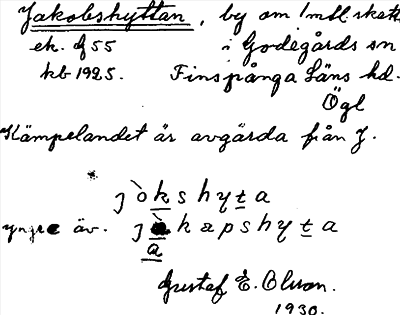 Jakobshyttan, by om 1 mtl skatt
ek. df 55 i Godegårds sn
kb 1925. Finspånga Läns hd.
Ögl
Kämpelandet är avgärda från J.
j ò k s h y t a
yngre äv. j k a p s h y t a
a
Gustaf E. Olsson.
1930.